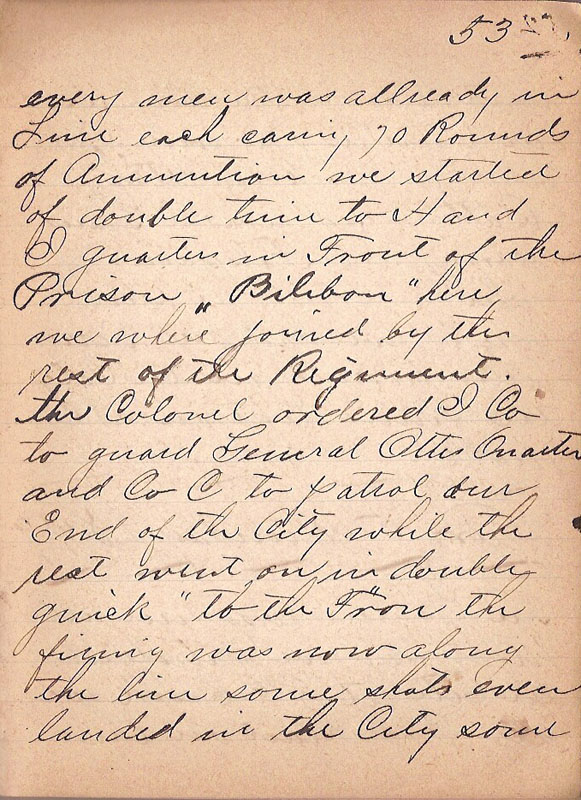 53
every men was allready in
Line each carry 70 Rounds
of Ammunition we started
of double time to H and
I quarters in Front of the
Prison "Bilibon" here
we where joined by the
rest of the Regiment.
the Colonel ordered I Co
to guard General Ottis Quarter
and Co C to patrol our
End of the City while the
rest went on in double
quick" to the Fron the
firing was now along
the line some shots even
landed in the City some